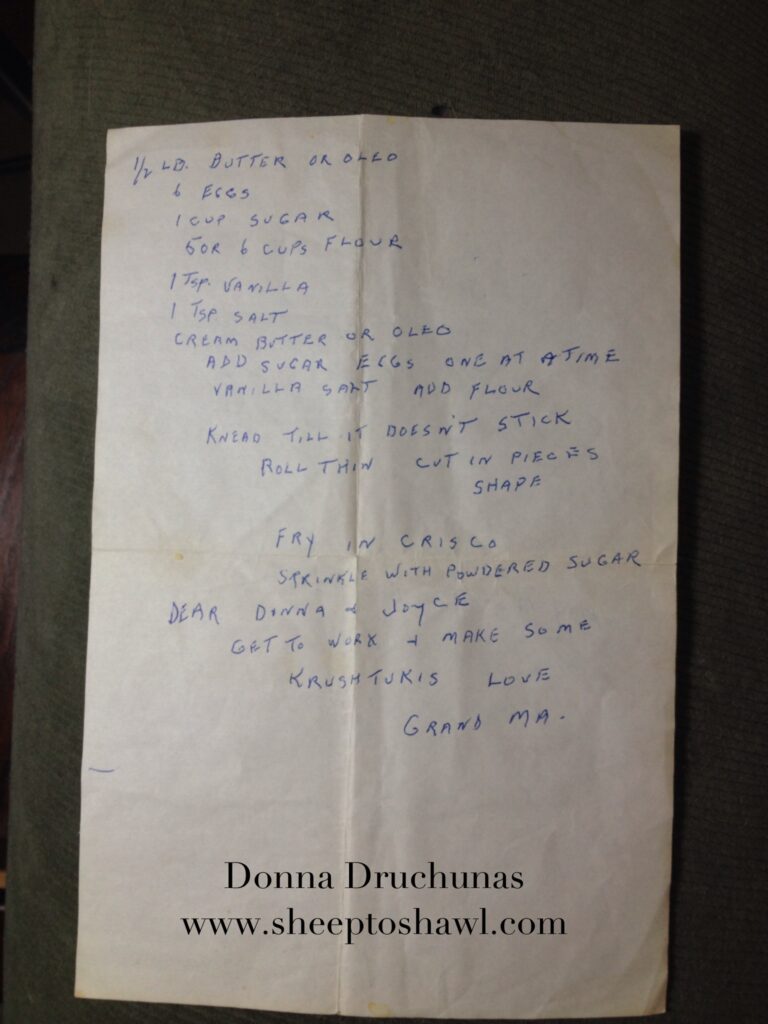 1/2 LB. BUTTER OR OLEO
6 EGGS
1 CUP SUGAR
5 OR 6 CUPS FLOUR
1 TSP. VANILLA
1 TSP SALT
CREAM BUTTER OR OLEO
ADD SUGAR EGGS ONE AT A TIME
VANILLA SALT ADD FLOUR
KNEAD TILL IT DOESN'T STICK
ROLL THIN CUT IN PIECES
SHAPE
FRY IN CRISCO
SPRINKLE WITH POWDERED SUGAR
DEAR DONNA + JOYCE
GET TO WORK + MAKE SOME
KRUSHTUKIS LOVE
GRAND MA.
Donna Druchunas
www.sheeptoshawl.com